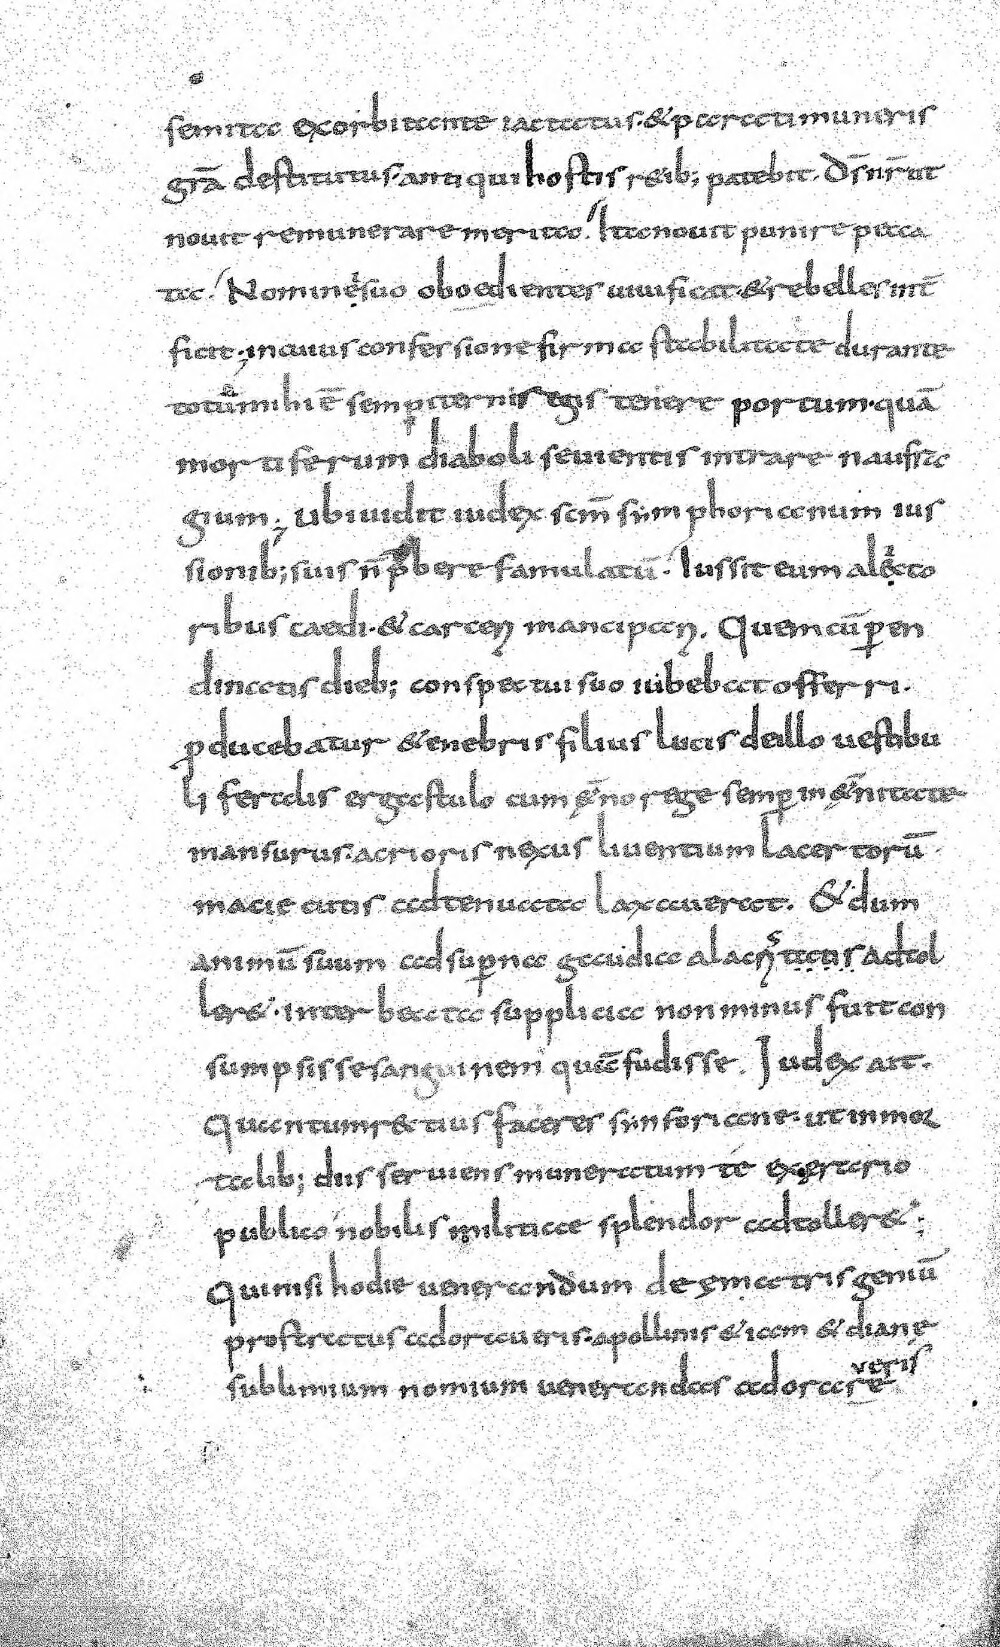 semita exorbitante iactatus· & parati muneris
gr̄a destitutus· antiqui hostis r&ib; patebit. Dn̄s nr̄ ut
nouit remunerare merita. Ita nouit punire pecca
ta. Nomine suo oboedientes uiuificat· & rebelles int̄
ficit; in cuius confessione firma stabilitate durante
totū mihi ē semp̄iternis regis tenere portum· quā
mortiferum diaboli seuientis intrare naufra
gium; Ubi uidit iudex scm̄ simphorianum ius
sionib; suis n̄ p̱bere famulatū. Iussit eum alecto
ribus caedi· & carceri mancipari. Quem cū p̱en
dinatis dieb; conspectui suo iubebat offerri.
p̱ducebatur & enebris filius lucis de illo uestibu
li feralis ergastulo cum &̄no rege semp̱ in &̄nitate
mansurus· acrioris nexus liuentium lacertorū
macie cutis ad tenuata laxauerat. & dum
animū suum ad sup̱na gaudia alacritatis adtol
ler&· inter haec ta supplicia non minus fuit con
sumpsisse sanguinem quā fudisse. Iudex ait.
Quantum rectius faceres sinforiane· ut inmor
talib; diis seruiens muneratum te ex aerario
publico nobilis militiae splendor adtoller&;
Qui nisi hodie uenerandum deę matris geniū
prostratus adoraueris· apollinis &iam & diane
sublimium nomium uenerandas adorare
veris